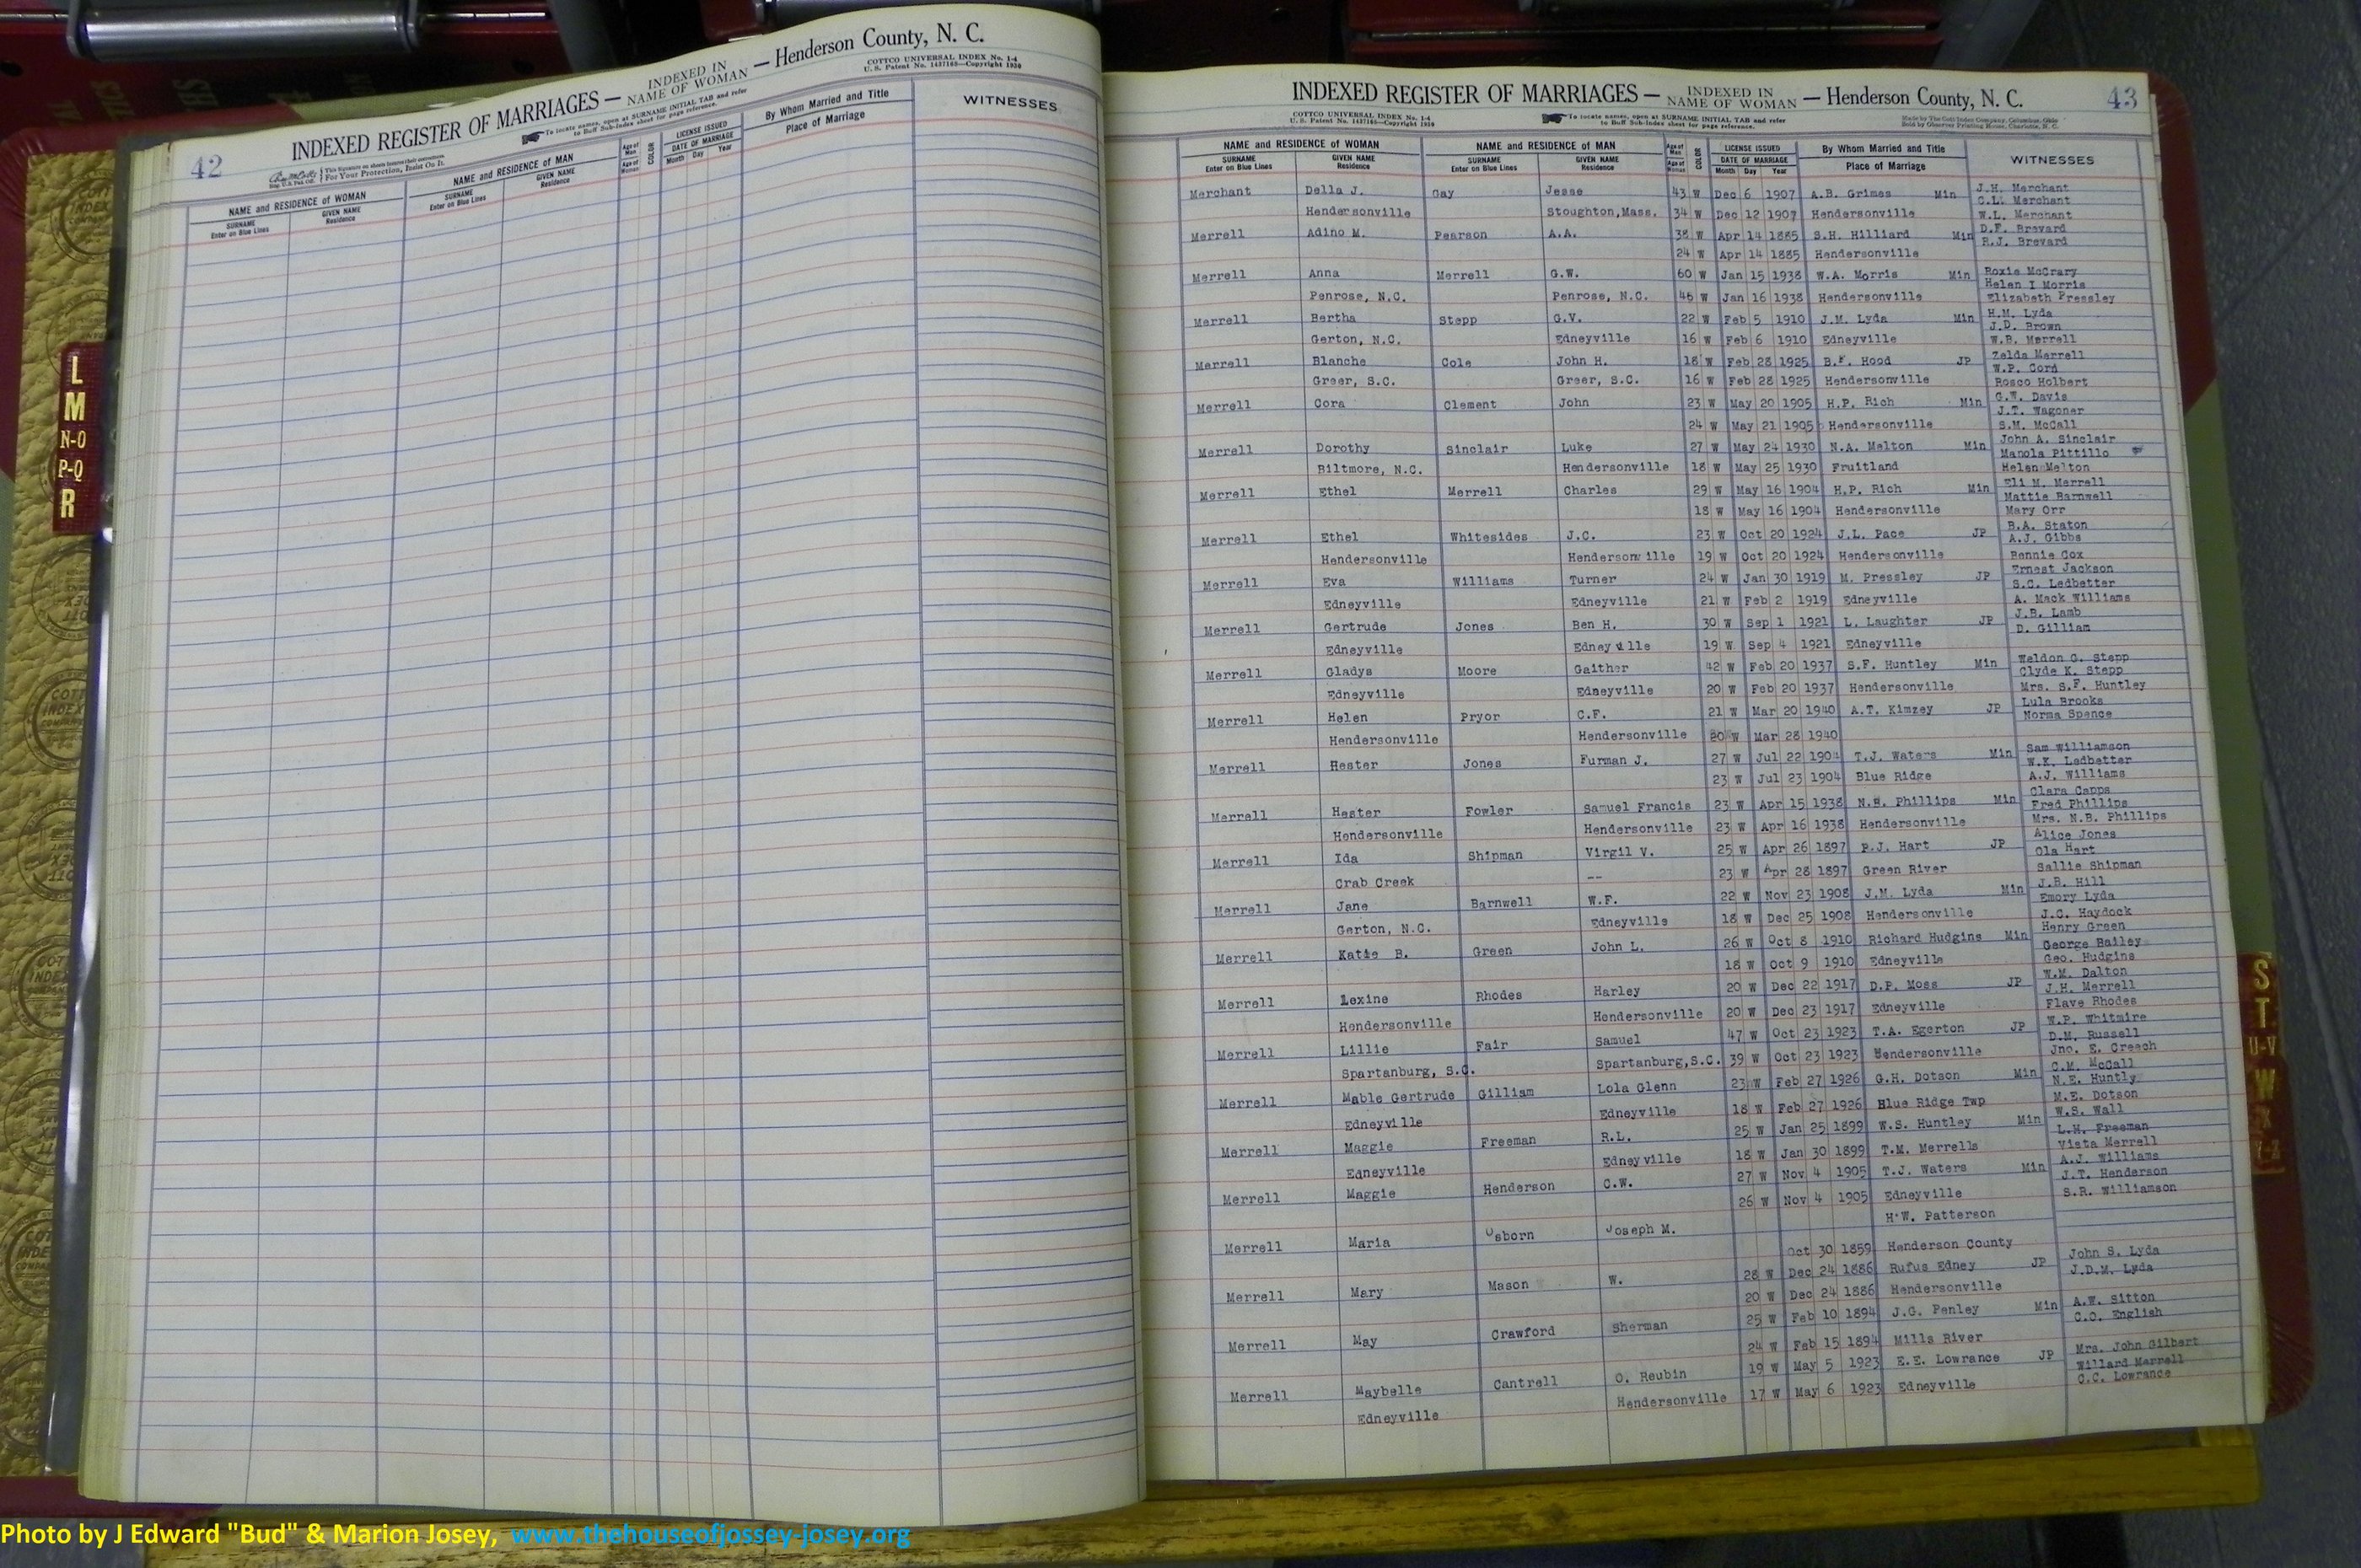 42
INDEXED REGISTER OF MARRIAGES — INDEXED IN NAME OF WOMAN — Henderson County, N. C.
COTTCO UNIVERSAL INDEX No. 1-4
U. S. Patent No. 1437165—Copyright 1930
To locate names, open at SURNAME INITIAL TAB and refer
to Buff Sub-Index sheet for page reference.
For Your Protection, Insist On It.
NAME and RESIDENCE of WOMAN NAME and RESIDENCE of MAN Age of Man Age of Woman COLOR LICENSE ISSUED DATE OF MARRIAGE By Whom Married and Title Place of Marriage WITNESSES
SURNAME Enter on Blue Lines GIVEN NAME Residence SURNAME Enter on Blue Lines GIVEN NAME Residence Month Day Year
L
M
N-O
P-Q
R
INDEXED REGISTER OF MARRIAGES — INDEXED IN NAME OF WOMAN — Henderson County, N. C. 43
COTTCO UNIVERSAL INDEX No. 1-4
U. S. Patent No. 1437165—Copyright 1930
To locate names, open at SURNAME INITIAL TAB and refer
to Buff Sub-Index sheet for page reference.
Made by The Cott Index Company, Columbus, Ohio
Sold by Observer Printing House, Charlotte, N. C.
NAME and RESIDENCE of WOMAN NAME and RESIDENCE of MAN Age of Man Age of Woman COLOR LICENSE ISSUED DATE OF MARRIAGE By Whom Married and Title Place of Marriage WITNESSES
SURNAME Enter on Blue Lines GIVEN NAME Residence SURNAME Enter on Blue Lines GIVEN NAME Residence Month Day Year
Merchant Della J. Gay Jesse 43 W Dec 6 1907 A.B. Grimes Min J.H. Merchant
C.L. Merchant
Hendersonville Stoughton,Mass. 34 W Dec 12 1907 Hendersonville W.L. Merchant
Merrell Adino M. Pearson A.A. 38 W Apr 14 1885 S.H. Hilliard Min D.F. Brevard
R.J. Brevard
24 W Apr 14 1885 Hendersonville
Merrell Anna Merrell G.W. 60 W Jan 15 1938 W.A. Morris Min Roxie McCrary
Helen I Morris
Penrose, N.C. Penrose, N.C. 46 W Jan 16 1938 Hendersonville Elizabeth Pressley
Merrell Bertha Stepp G.V. 22 W Feb 5 1910 J.M. Lyda Min H.M. Lyda
J.D. Brown
Gerton, N.C. Edneyville 16 W Feb 6 1910 Edneyville W.B. Merrell
Merrell Blanche Cole John H. 18 W Feb 28 1925 B.F. Hood JP Zelda Merrell
W.P. Cord
Greer, S.C. Greer, S.C. 16 W Feb 28 1925 Hendersonville Rosco Holbert
Merrell Cora Clement John 23 W May 20 1905 H.P. Rich Min G.W. Davis
J.T. Wagoner
24 W May 21 1905 Hendersonville S.M. McCall
Merrell Dorothy Sinclair Luke 27 W May 24 1930 N.A. Melton Min John A. Sinclair
Manola Pittillo
Biltmore, N.C. Hendersonville 18 W May 25 1930 Fruitland Helen Melton
Merrell Ethel Merrell Charles 29 W May 16 1904 H.P. Rich Min Eli M. Merrell
Mattie Barnwell
18 W May 16 1904 Hendersonville Mary Orr
Merrell Ethel Whitesides J.C. 23 W Oct 20 1924 J.L. Pace JP B.A. Staton
A.J. Gibbs
Hendersonville Hendersonville 19 W Oct 20 1924 Hendersonville Bennie Cox
Merrell Eva Williams Turner 24 W Jan 30 1919 M. Pressley JP Ernest Jackson
S.C. Ledbetter
Edneyville Edneyville 21 W Feb 2 1919 Edneyville A. Mack Williams
Merrell Gertrude Jones Ben H. 30 W Sep 1 1921 L. Laughter JP J.B. Lamb
D. Gilliam
Edneyville Edneyville 19 W Sep 4 1921 Edneyville
Merrell Gladys Moore Gaither 42 W Feb 20 1937 S.F. Huntley Min Weldon G. Stepp
Clyde K. Stepp
Edneyville Edneyville 20 W Feb 20 1937 Hendersonville Mrs. S.F. Huntley
Merrell Helen Pryor C.F. 21 W Mar 20 1940 A.T. Kimzey JP Lula Brooks
Norma Spence
Hendersonville Hendersonville 20 W Mar 28 1940
Merrell Hester Jones Furman J. 27 W Jul 22 1904 T.J. Waters Min Sam Williamson
W.K. Ledbetter
23 W Jul 23 1904 Blue Ridge A.J. Williams
Merrell Hester Fowler Samuel Francis 23 W Apr 15 1938 N.B. Phillips Min Clara Capps
Fred Phillips
Hendersonville Hendersonville 23 W Apr 16 1938 Hendersonville Mrs. N.B. Phillips
Merrell Ida Shipman Virgil V. 25 W Apr 26 1897 P.J. Hart JP Alice Jones
Ola Hart
Crab Creek -- 23 W Apr 28 1897 Green River Sallie Shipman
Merrell Jane Barnwell W.F. 22 W Nov 23 1908 J.M. Lyda Min J.B. Hill
Emory Lyda
Gerton, N.C. Edneyville 18 W Dec 25 1908 Hendersonville J.C. Haydock
Merrell Katie B. Green John L. 26 W Oct 8 1910 Richard Hudgins Min Henry Green
George Bailey
18 W Oct 9 1910 Edneyville Geo. Hudgins
Merrell Lexine Rhodes Harley 20 W Dec 22 1917 D.P. Moss JP W.M. Dalton
J.H. Merrell
Hendersonville Hendersonville 20 W Dec 23 1917 Edneyville Flave Rhodes
Merrell Lillie Fair Samuel 47 W Oct 23 1923 T.A. Egerton JP W.P. Whitmire
D.M. Russell
Spartanburg, S.C. Spartanburg,S.C. 39 W Oct 23 1923 Hendersonville Jno. E. Creech
Merrell Mable Gertrude Gilliam Lola Glenn 23 W Feb 27 1926 G.H. Dotson Min C.M. McCall
N.E. Huntly
Edneyville Edneyville 18 W Feb 27 1926 Blue Ridge Twp M.E. Dotson
Merrell Maggie Freeman R.L. 25 W Jan 25 1899 W.S. Huntley Min W.S. Wall
L.H. Freeman
Edneyville Edneyville 18 W Jan 30 1899 T.M. Merrells Vista Merrell
Merrell Maggie Henderson C.W. 27 W Nov 4 1905 T.J. Waters Min A.J. Williams
J.T. Henderson
26 W Nov 4 1905 Edneyville S.R. Williamson
Merrell Maria Osborn Joseph M. H.W. Patterson
Oct 30 1859 Henderson County
Merrell Mary Mason W. 28 W Dec 24 1886 Rufus Edney JP John S. Lyda
J.D.M. Lyda
20 W Dec 24 1886 Hendersonville
Merrell May Crawford Sherman 25 W Feb 10 1894 J.G. Penley Min A.W. Sitton
C.C. English
24 W Feb 15 1894 Mills River
Merrell Maybelle Cantrell O. Reubin 19 W May 5 1923 E.E. Lowrance JP Mrs. John Gilbert
Willard Merrell
Edneyville Hendersonville 17 W May 6 1923 Edneyville C.C. Lowrance
S
T
U-V
W
X
Y-Z
Photo by J Edward "Bud" & Marion Josey, www.thehouseofjossey-josey.org